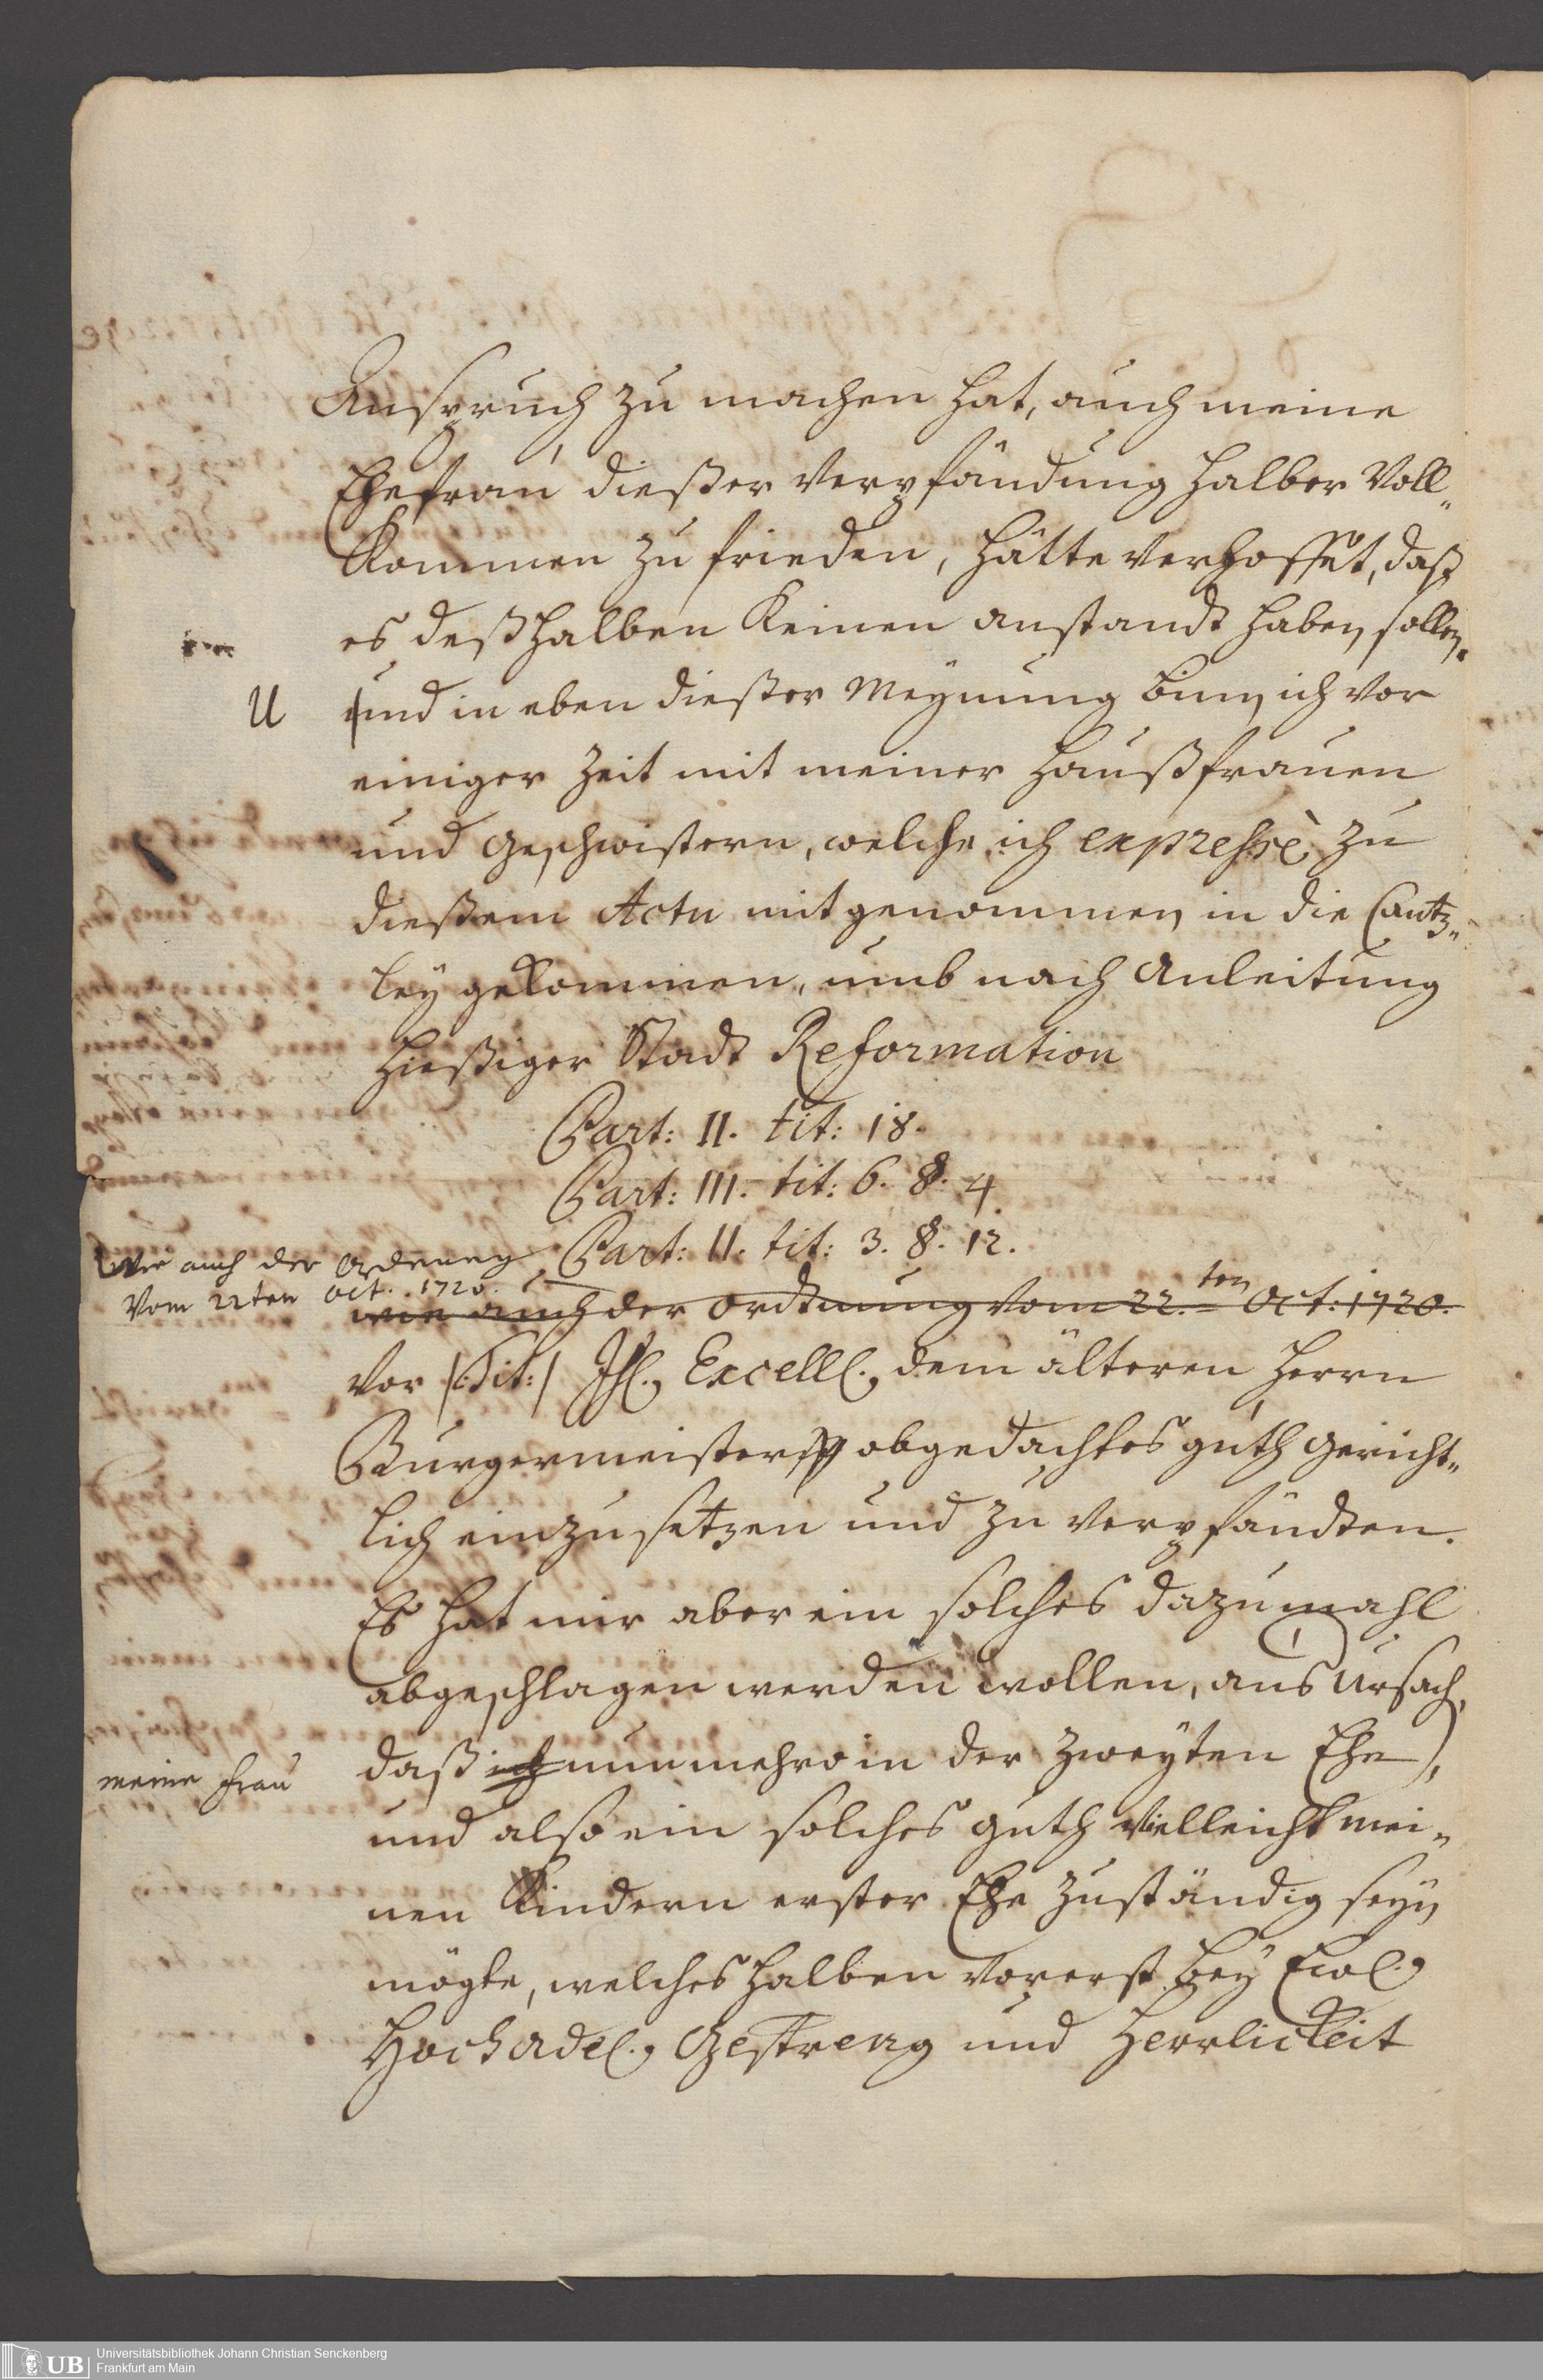 Anspruch zu machen hat, auch meine
Ehefrau dießer Verpfändung halber Voll„
Kommen zu frieden, hätte verhoffet, daß
es deßhalben Keinen anstandt haben sollen.
U
und in eben dießer Meynung bin ich vor
einiger Zeit mit meiner Haußfrauen
und Geschwistern, welche ich expressè zu
dießem Actu mitgenommen in die Cantz„
ley gekommen, umb nach Anleitung
hießiger Stadt Reformation
Part: II. tit: 18.
Part: III. tit: 6. §. 4
Part: II. tit: 3. §. 12.
wie auch der Ordnung
Vom 22ten Oct. 1720.
wie auch der Ordtnung Vom 22.ten Oct: 1720.
vor /:Tit:/ Ihl. Excell. dem älteren Herrn
Burgermeister obgedachtes guth Gericht„
lich einzusetzen und zu verpfändten.
Es hat mir aber ein solches dazumahl
abgeschlagen werden wollen, aus Ursach,
meine Frau
daß ich nunmehro in der Zweyten Ehe,
und also ein solches guth vielleicht mei„
nen Kindern erster Ehe zuständig seyn
mögte, welches halben vorerst bey Ewl.
Hochadel. Gestreng und Herrlickeit
Universitätsbibliothek Johann Christian Senckenberg
Frankfurt am Main
UB